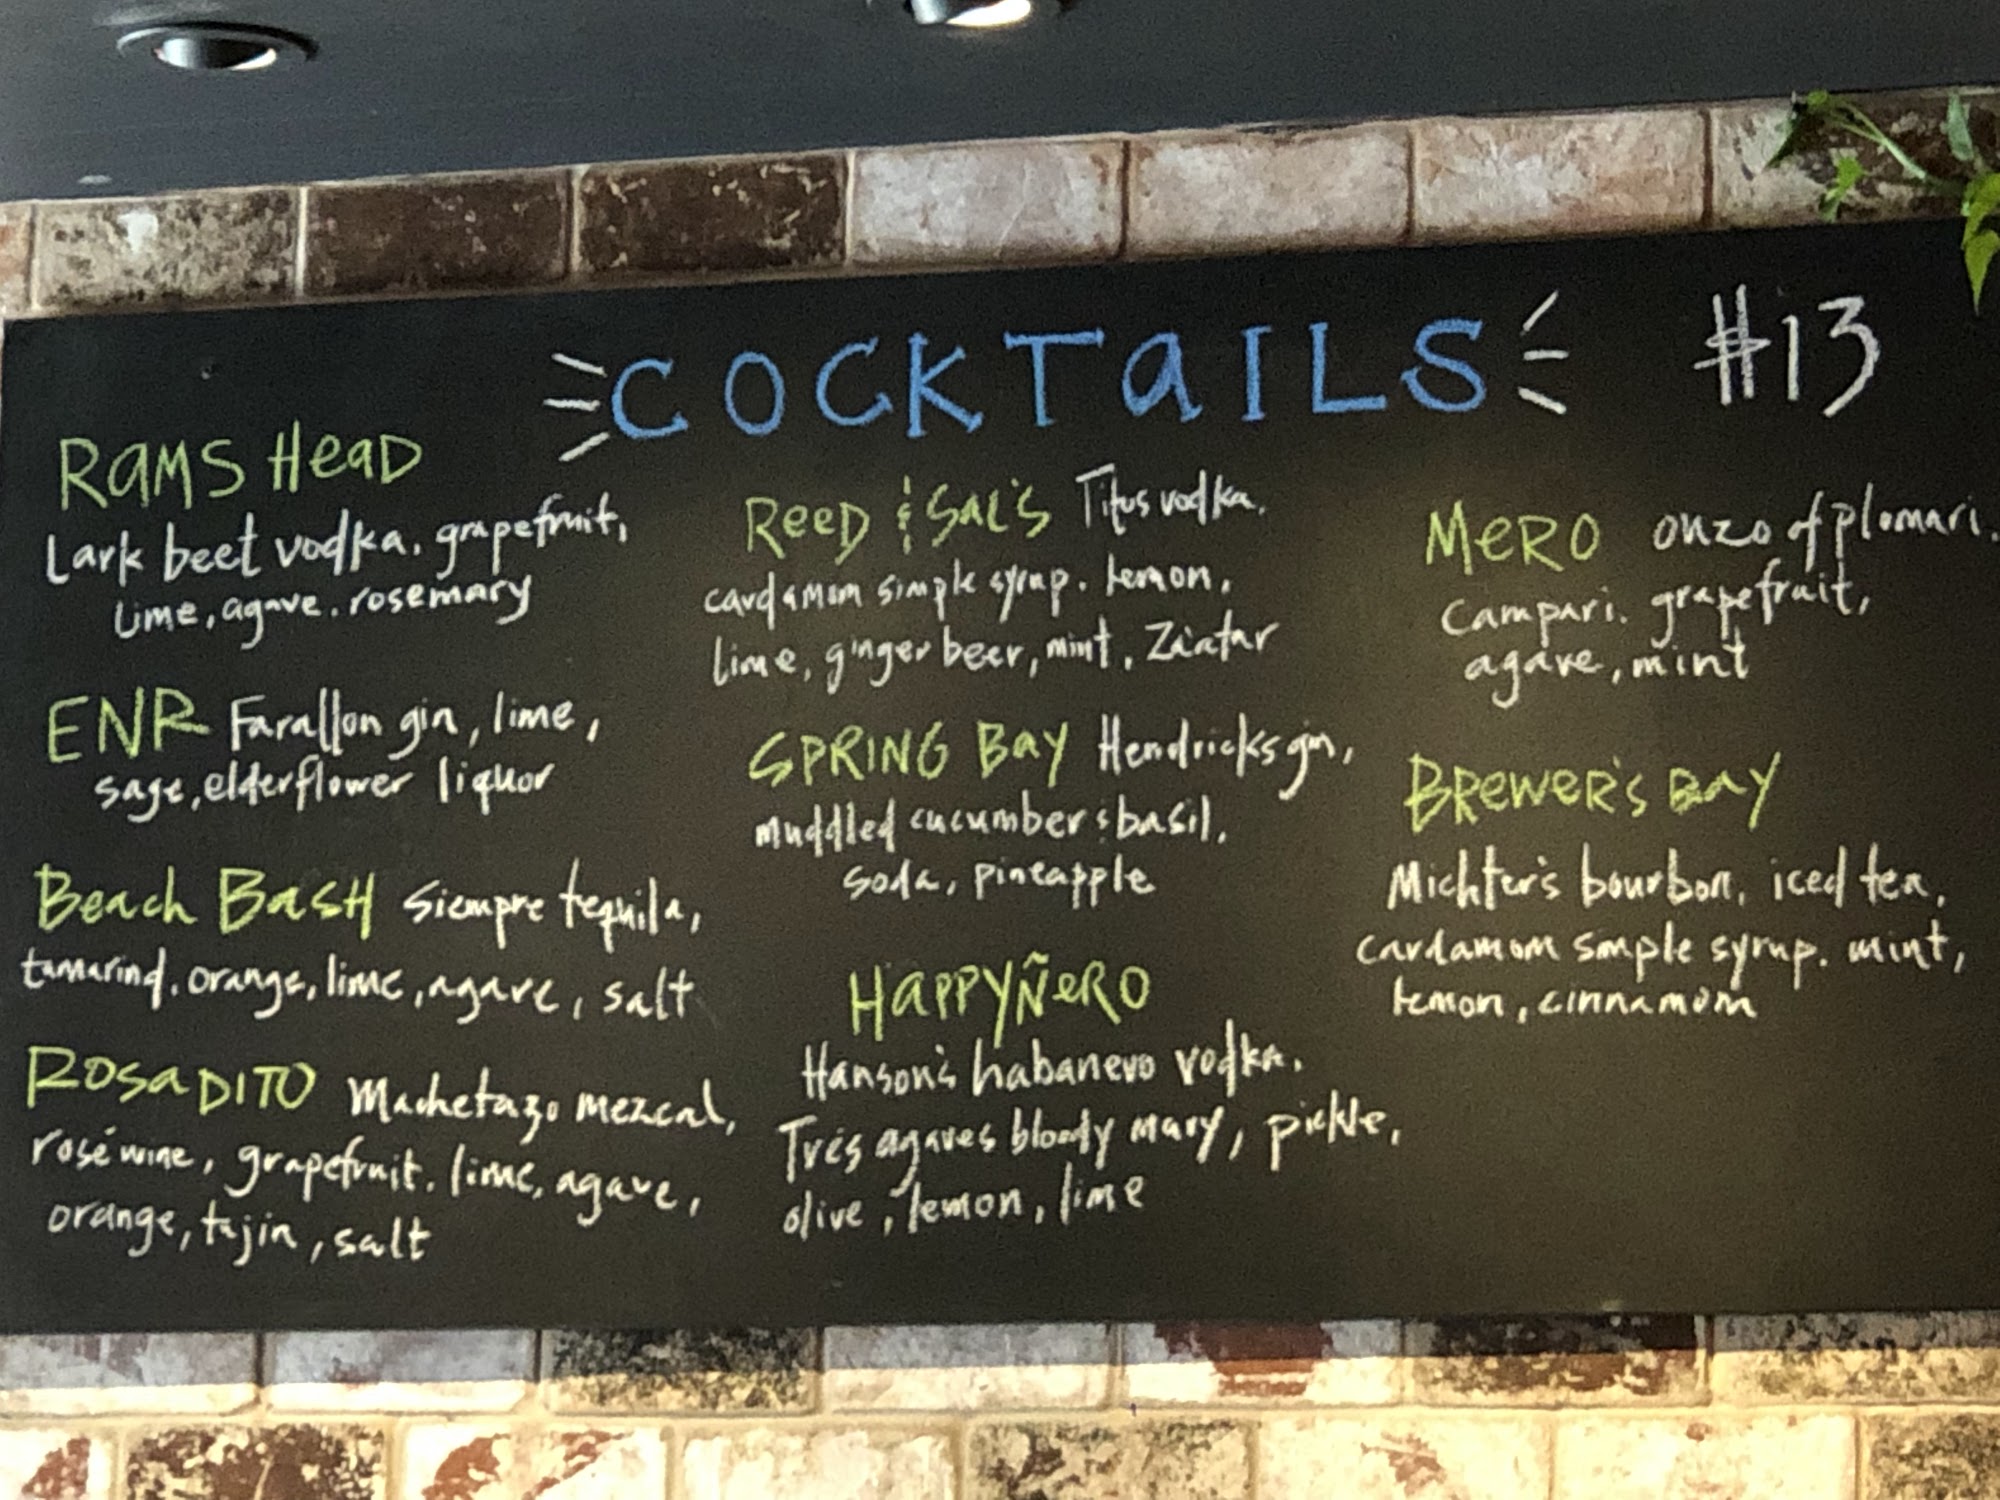 COCKTAILS #13
RAMS HEAD
Lark beet vodka, grapefruit,
lime, agave, rosemary
ENR Farallon gin, lime,
sage, elderflower liquor
Beach BASH Siempre tequila,
tamarind, orange, lime, agave, salt
ROSADITO Machetazo mezcal,
rosé wine, grapefruit, lime, agave,
orange, tajin, salt
REED & SAL'S Titus vodka,
cardamom simple syrup, lemon,
lime, ginger beer, mint, Za'atar
SPRING BAY Hendricks gin,
muddled cucumber & basil,
soda, pineapple
HAPPYÑERO
Hanson's habanero vodka,
Trés agaves bloody mary, pickle,
olive, lemon, lime
MERO onzo of plomari,
Campari, grapefruit,
agave, mint
BREWER'S BAY
Michter's bourbon, iced tea,
cardamom smple syrup, mint,
lemon, cinnamom